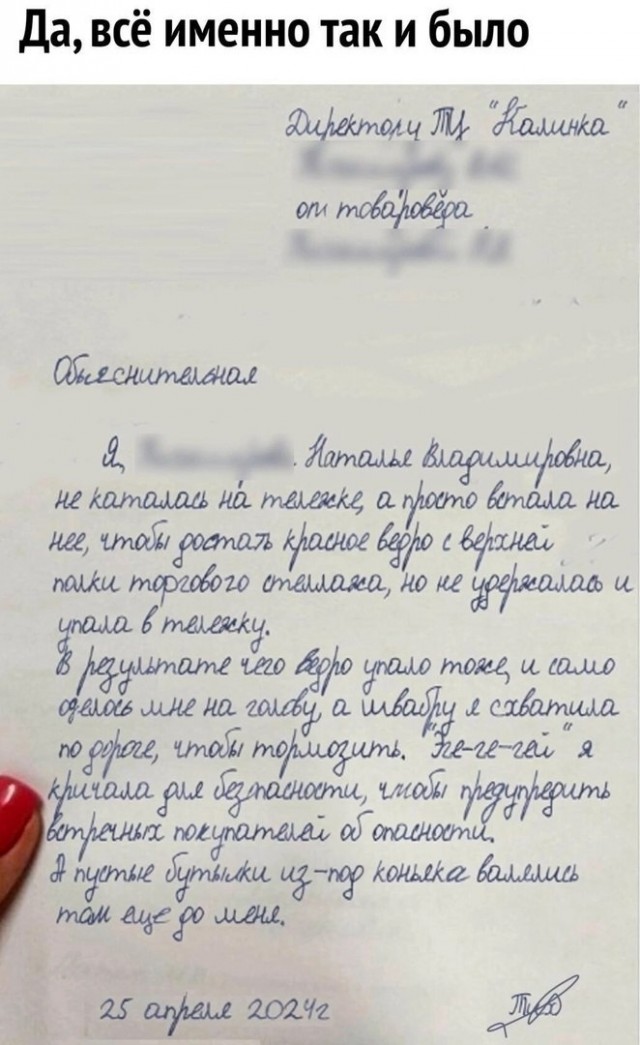 Да, всё именно так и было
Директору ТЦ "Калинка"
от товароведа
Объяснительная
Я, Наталья Владимировна,
не каталась на тележке, а просто встала на
нее, чтобы достать красное ведро с верхней
полки торгового стеллажа, но не удержалась и
упала в тележку.
В результате чего ведро упало тоже, и само
оделось мне на голову, а швабру я схватила
по дороге, чтобы тормозить. "Эге-ге-гей" я
кричала для безопасности, чтобы предупредить
встречных покупателей об опасности.
А пустые бутылки из-под коньяка валялись
там еще до меня.
25 апреля 2024г